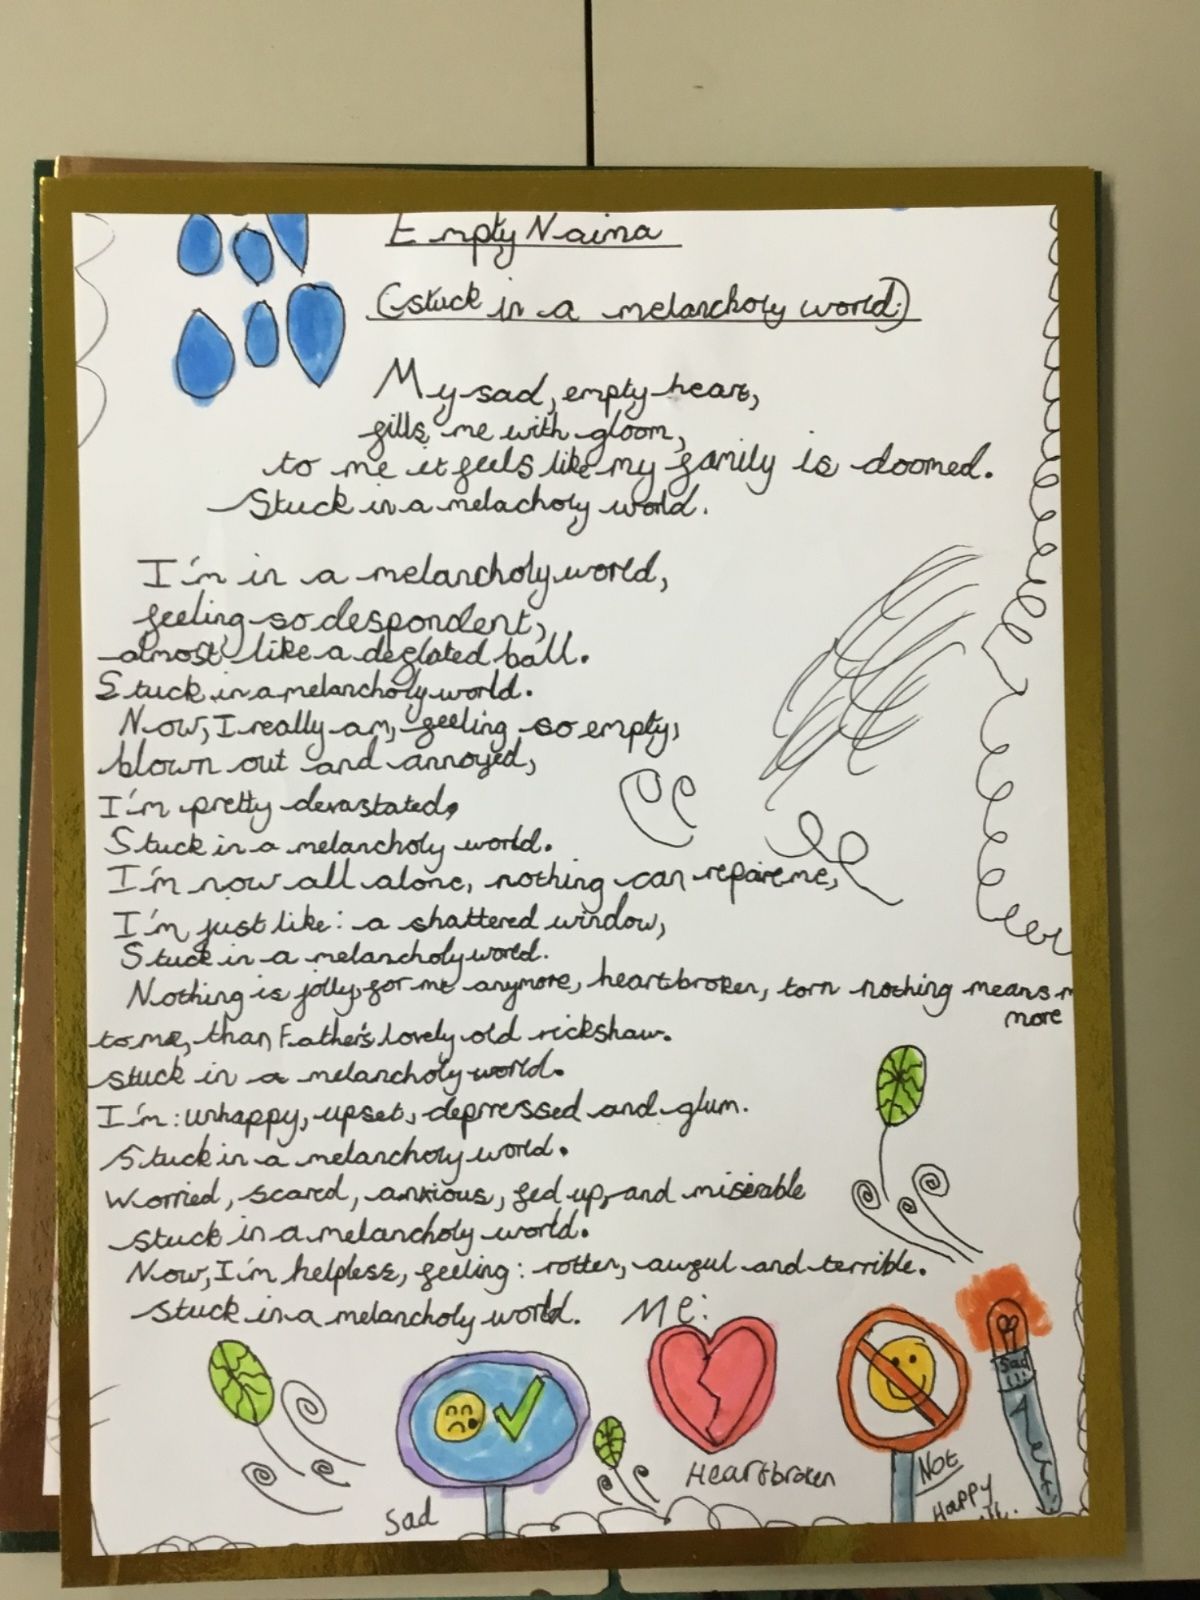 Empty Naima
(stuck in a melancholy world.)
My sad, empty heart,
fills me with gloom,
to me it feels like my family is doomed.
Stuck in a melacholy world.
I'm in a melancholy world,
feeling so despondent,
almost like a deflated ball.
Stuck in a melancholy world.
Now, I really am, feeling so empty,
blown out and annoyed,
I'm pretty devastated,
Stuck in a melancholy world.
I'm now all alone, nothing can repaire me,
I'm just like: a shattered window,
Stuck in a melancholy world.
Nothing is jolly, for me anymore, heartbroken, torn nothing means
more
to me, than Father's lovely old rickshaw.
stuck in a melancholy world.
I'm: unhappy, upset, depressed and glum.
Stuck in a melancholy world.
Worried, scared, anxious, fed up, and miserable
stuck in a melancholy world.
Now, I'm helpless, feeling: rotten, awful and terrible.
Stuck in a melancholy world.
Me:
Sad
Heartbroken
Not
Happy
Sad